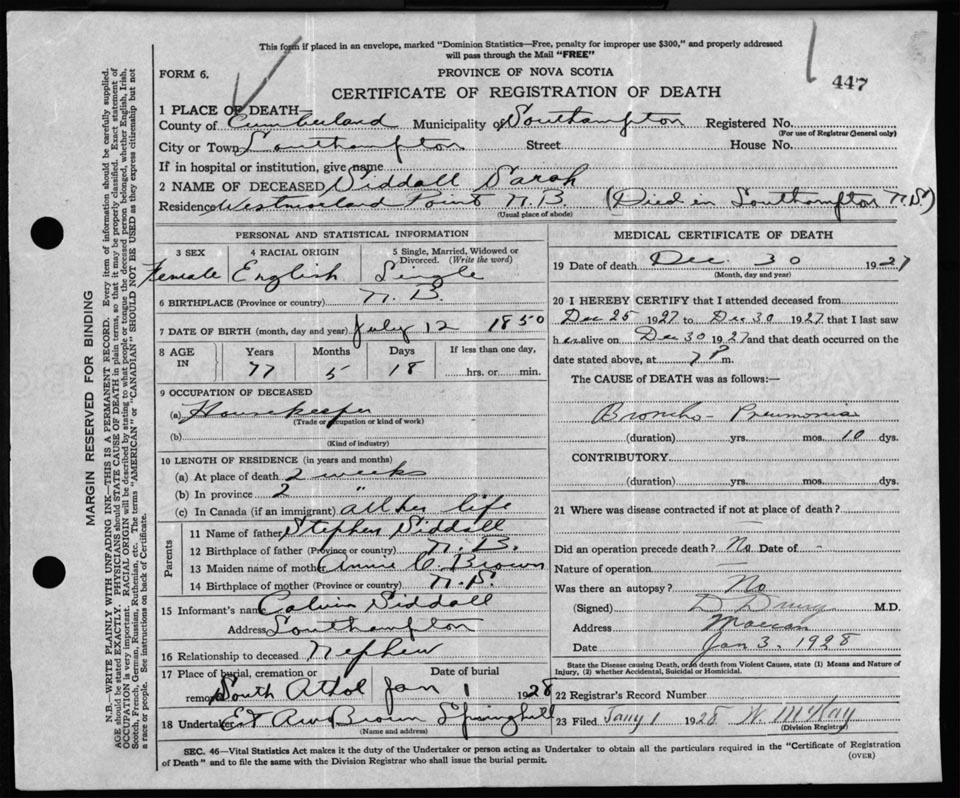 This form if placed in an envelope, marked "Dominion Statistics—Free, penalty for improper use $300," and properly addressed
will pass through the Mail "FREE"
FORM 6.
PROVINCE OF NOVA SCOTIA
447
CERTIFICATE OF REGISTRATION OF DEATH
1 PLACE OF DEATH—
County of Cumberland Municipality of Southampton Registered No.
(For use of Registrar General only)
City or Town Southampton Street House No.
If in hospital or institution, give name
2 NAME OF DECEASED Siddall Sarah
Residence Westmorland Point N.B. (Died in Southampton N.S.)
(Usual place of abode)
PERSONAL AND STATISTICAL INFORMATION
3 SEX 4 RACIAL ORIGIN 5 Single, Married, Widowed or
Divorced. (Write the word)
Female English Single
6 BIRTHPLACE (Province or country) N. B.
7 DATE OF BIRTH (month, day and year) July 12 1850
8 AGE IN Years Months Days If less than one day,
77 5 18 hrs. or min.
9 OCCUPATION OF DECEASED
(a) Housekeeper
(Trade or occupation or kind of work)
(b)
(Kind of industry)
10 LENGTH OF RESIDENCE (in years and months)
(a) At place of death 2 weeks
(b) In province 2 "
(c) In Canada (if an immigrant) all her life
Parents
11 Name of father Stephen Siddall
12 Birthplace of father (Province or country) N. B.
13 Maiden name of mother Annie C. Brown
14 Birthplace of mother (Province or country) N. S.
15 Informant's name Calvin Siddall
Address Southampton
16 Relationship to deceased Nephew
17 Place of burial, cremation or Date of burial
removal South Athol Jan 1 1928
18 Undertaker Brown Springhill
(Name and address)
MEDICAL CERTIFICATE OF DEATH
19 Date of death Dec. 30 1927
(Month, day and year)
20 I HEREBY CERTIFY that I attended deceased from
Dec 25 1927 to Dec 30 1927 that I last saw
h er alive on Dec 30 1927 and that death occurred on the
date stated above, at 7 P m.
The CAUSE of DEATH was as follows:—
Broncho-Pneumonia
(duration) yrs. mos. 10 dys.
CONTRIBUTORY.
(duration) yrs. mos. dys.
21 Where was disease contracted if not at place of death?
Did an operation precede death? No Date of -
Nature of operation
Was there an autopsy? No
(Signed) M.D.
Address Maccan
Date Jan 3. 1928
State the Disease causing Death, or in death from Violent Causes, state (1) Means and Nature of
Injury, (2) whether Accidental, Suicidal or Homicidal.
22 Registrar's Record Number
23 Filed Jany 1 1928 W. McKay
(Division Registrar)
SEC. 46—Vital Statistics Act makes it the duty of the Undertaker or person acting as Undertaker to obtain all the particulars required in the "Certificate of Registration
of Death" and to file the same with the Division Registrar who shall issue the burial permit.
(OVER)
MARGIN RESERVED FOR BINDING
N.B.—WRITE PLAINLY WITH UNFADING INK—THIS IS A PERMANENT RECORD. Every item of information should be carefully supplied.
AGE should be stated EXACTLY. PHYSICIANS should STATE CAUSE OF DEATH in plain terms, so that it may be properly classified. Exact statement of
OCCUPATION is very important. RACIAL ORIGIN will be described by stating to what people or tongue the deceased person belonged, whether English, Irish,
Scotch, French, German, Russian, Ruthenian, etc. The terms "AMERICAN" or "CANADIAN" SHOULD NOT BE USED as they express citizenship but not
a race or people. See instructions on back of Certificate.